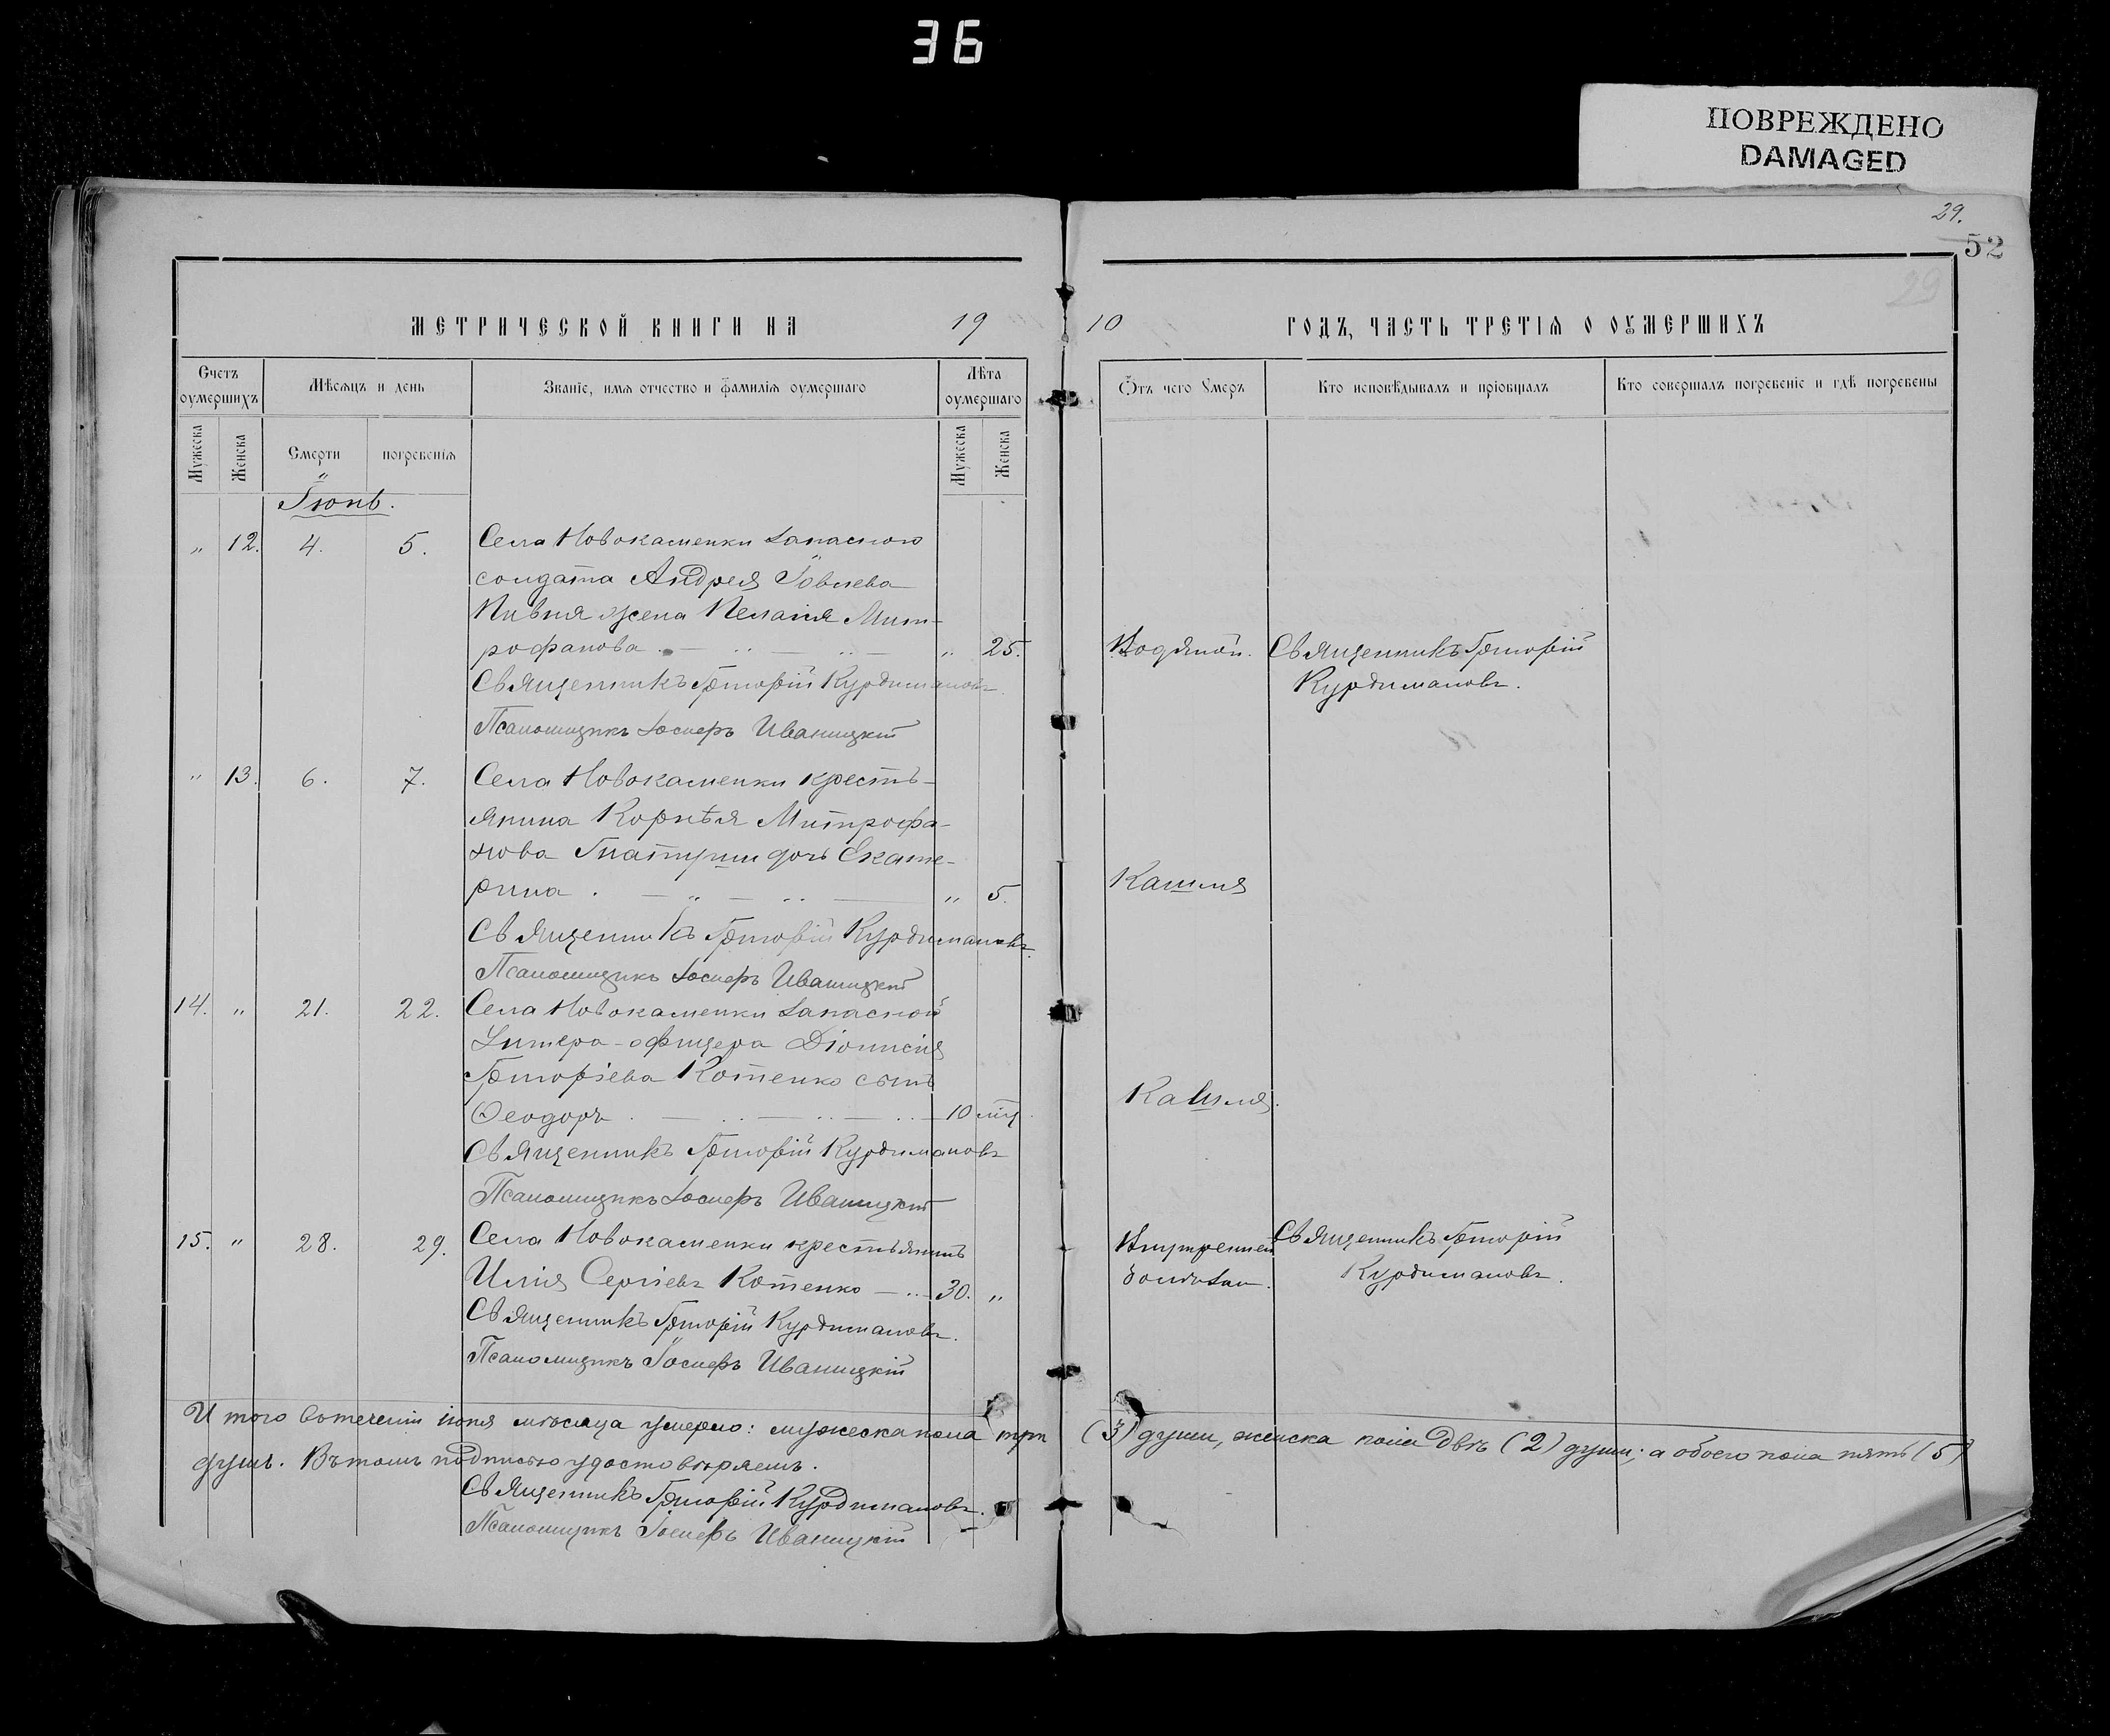 36
ПОВРЕЖДЕНО
DAMAGED
29.
52
29
МЕТРИЧЕСКОЙ КНИГИ НА 19
10 ГОДЪ, ЧАСТЬ ТРЕТІЯ О ОУМЕРШИХЪ
Счетъ оумершихъ
Мѣсяцъ и день
Званіе, имя отчество и фамилія оумершаго
Лѣта оумершаго
Отъ чего умеръ
Кто исповѣдывалъ и пріобщалъ
Кто совершалъ погребеніе и гдѣ погребены
Мужеска
Женска
Смерти
погребенія
Мужеска
Женска
Іюнь.
„ 12. 4. 5. Села Новокаменки запасного
солдата Андрея Іовлева
Пивня жена Пелагія Мит-
рофанова „ 25. Водяной. Священникъ Григорій
Священникъ Григорій Курдимановъ. Курдимановъ.
Псаломщикъ Іосифъ Иваницкій
„ 13. 6. 7. Села Новокаменки кресть-
янина Корнѣя Митрофа-
нова дочь Екате-
рина „ 5. Кашля
Священникъ Григорій Курдимановъ.
Псаломщикъ Іосифъ Иваницкій
14. „ 21. 22. Села Новокаменки запасной
Унтера-офицера Діонисія
Григоріева Котенко сынъ
Ѳеодоръ 10 мц. Кашля.
Священникъ Григорій Курдимановъ
Псаломщикъ Іосифъ Иваницкій
15. „ 28. 29. Села Новокаменки крестьянинъ Внутренней Священникъ Григорій
Илія Сергіевъ Котенко 30. „ болѣзни. Курдимановъ.
Священникъ Григорій Курдимановъ.
Псаломщикъ Іосифъ Иваницкій
Итого въ теченіи іюня мѣсяца умерло: мужеска пола три (3) души, женска пола двѣ (2) души; а обоего пола пять (5)
душъ. Въ томъ подписью удостовѣряемъ.
Священникъ Григорій Курдимановъ.
Псаломщикъ Іосифъ Иваницкій